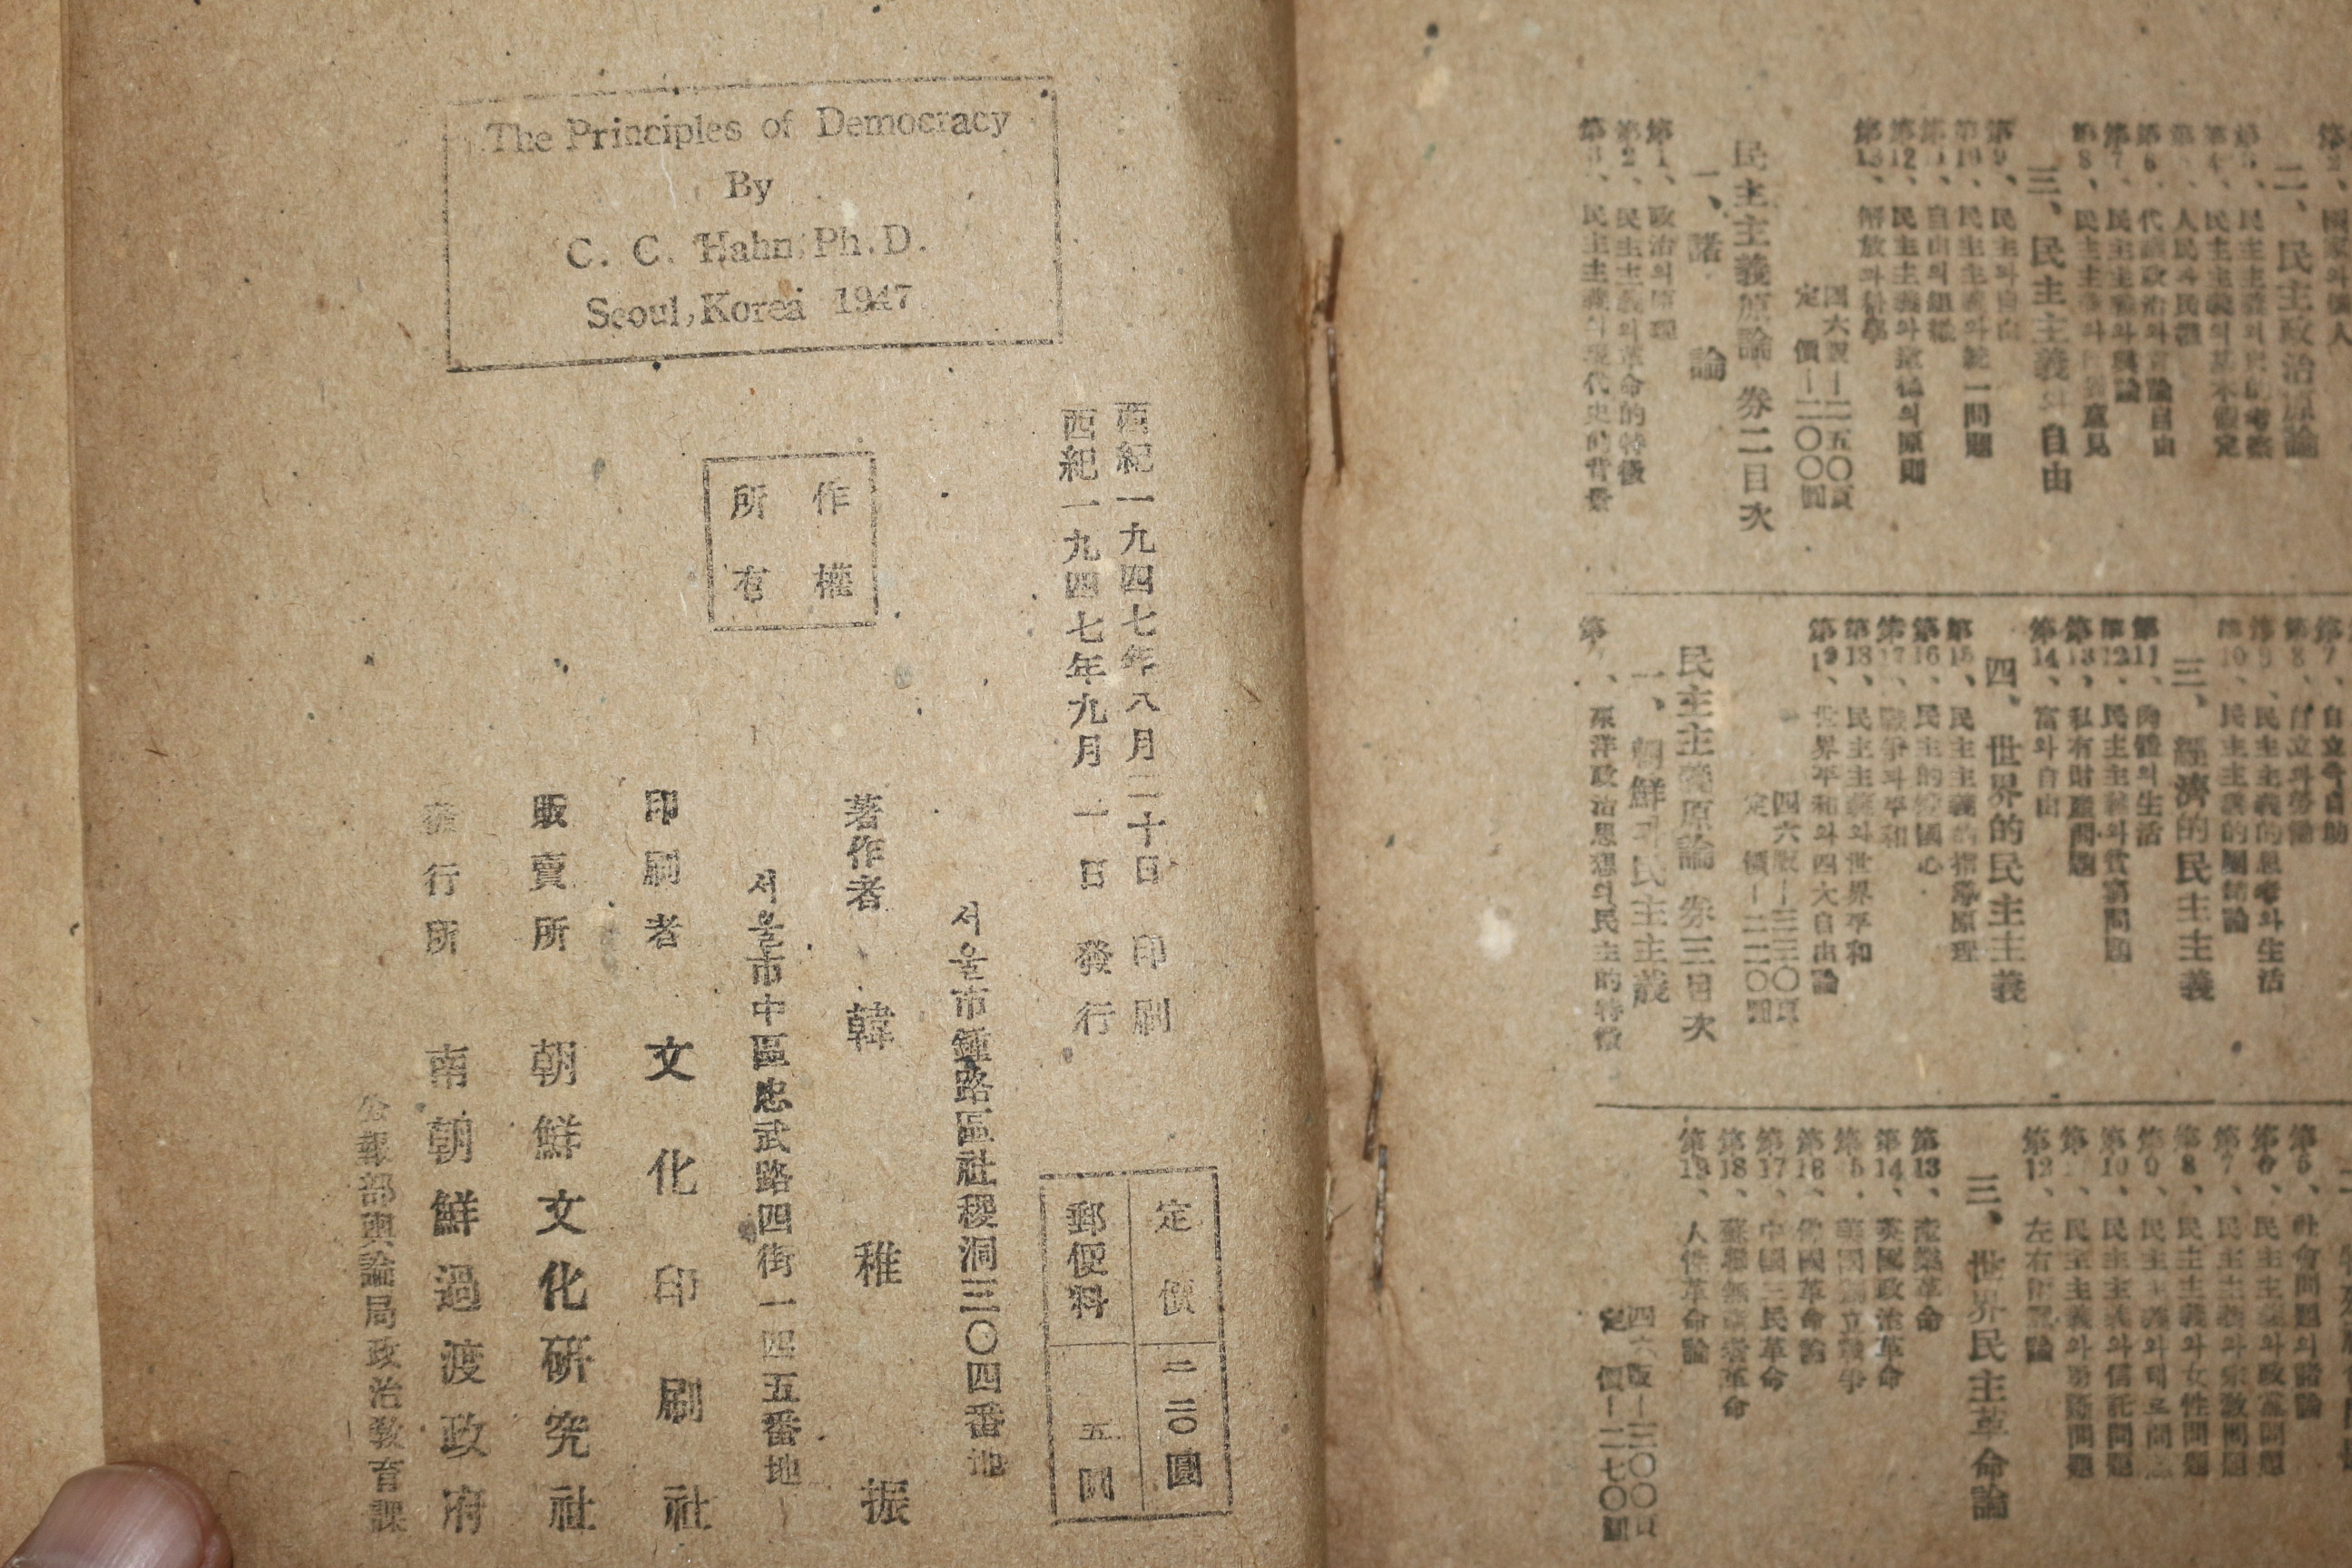 The Principles of Democracy
By
C. C. Hahn, Ph.D.
Seoul, Korea 1947
作權
所有
西紀一九四七年八月二十日 印刷
西紀一九四七年九月 一 日 發行
定價 二二〇圓
郵便料 五圓
서울市鍾路區社稷洞三〇四番地
著作者 韓稚振
서울市中區忠武路四街一四五番地
印刷者 文化印刷社
販賣所 朝鮮文化硏究社
發行所 南朝鮮過渡政府
公報部輿論局政治敎育課
二、民主政治原論
第6、代議政治와言論自由
第7、民主主義와輿論
三、民主主義의自由
第9、民主와自由
第10、民主主義와統一問題
第11、自由의組織
第12、民主主義와道德의原則
第13、解放와科學
四六版—二五〇頁
定 價—二〇〇圓
民主主義原論 券二目次
一、諸 論
第1、政治의原理
第2、民主主義의革命的特徵
第3、民主主義의現代史的背景
第7、自立과自助
第8、自立과勞働
第9、民主主義的思考와生活
三、經濟的民主主義
第11、肉體의生活
第12、民主主義와貧富問題
第13、私有財産問題
第14、富와自由
四、世界的民主主義
第15、民主主義的指導原理
第16、民主的愛國心
第17、戰爭과平和
第18、民主主義와世界平和
第19、世界平和의四大自由論
四六版—三三〇頁
定 價—二二〇圓
民主主義原論 券三目次
一、朝鮮과民主主義
東洋政治思想의民主的特徵
第5、社會問題의諸論
第6、民主主義와政黨問題
第7、民主主義와宗敎問題
第8、民主主義와女性問題
第10、民主主義와信託問題
三、世界民主革命論
第13、産業革命
第14、英國政治革命
第15、美國獨立戰爭
第16、佛國革命論
第17、中國三民革命
第18、蘇聯無産者革命
第19、人性革命論
四六版—三〇〇頁
定 價—二七〇圓